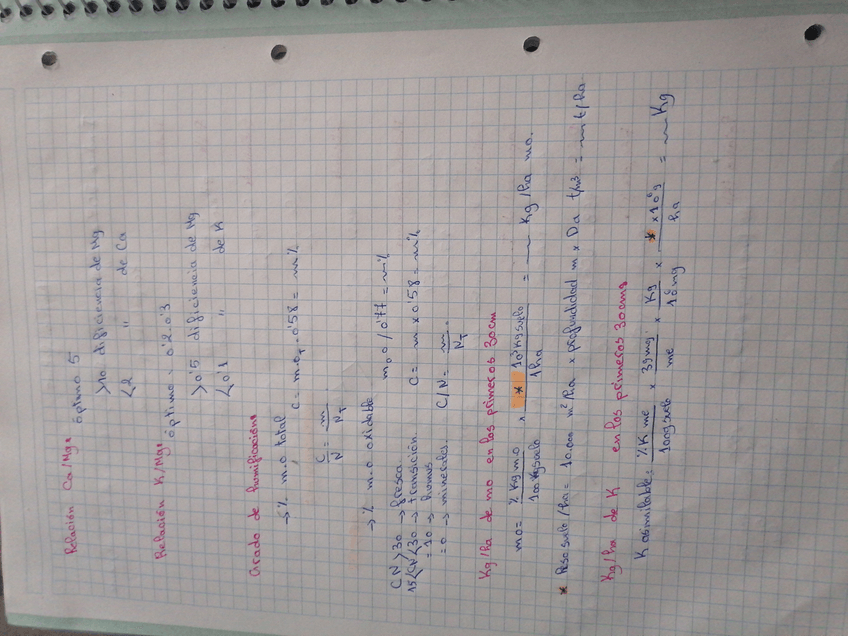 Relación Ca/Mg:
óptimo 5
>10 dificiencia de Mg
<2 " de Ca
Relación K/Mg:
óptimo = 0'2-0'3
>0'5 dificiencia de Mg
<0'1 " de K
Grado de humificación:
→ % m.o total C = m.oT · 0'58 = m%
C/N = m/NT
→ % m.o oxidable m.o / 0'77 = m%
CN >30 → fresca C = m x 0'58 = m%
15<CN<30 → transición
=10 → humus C/N = m/NT
=0 → minerales
Kg/ha de mo en los primeros 30cm
mo = % Kg m.o / 100 Kg suelo x * 10³ Kg suelo / 1 ha = m Kg/ha mo.
* Peso suelo/ha = 10.000 m²/ha x profundidad m x Da t/m³ = m t/ha
Kg/ha de K en los primeros 30cms
K asimilable = % K me / 100g suelo x 39mg / me x Kg / 10⁶ mg x * x10⁶g / ha = m Kg